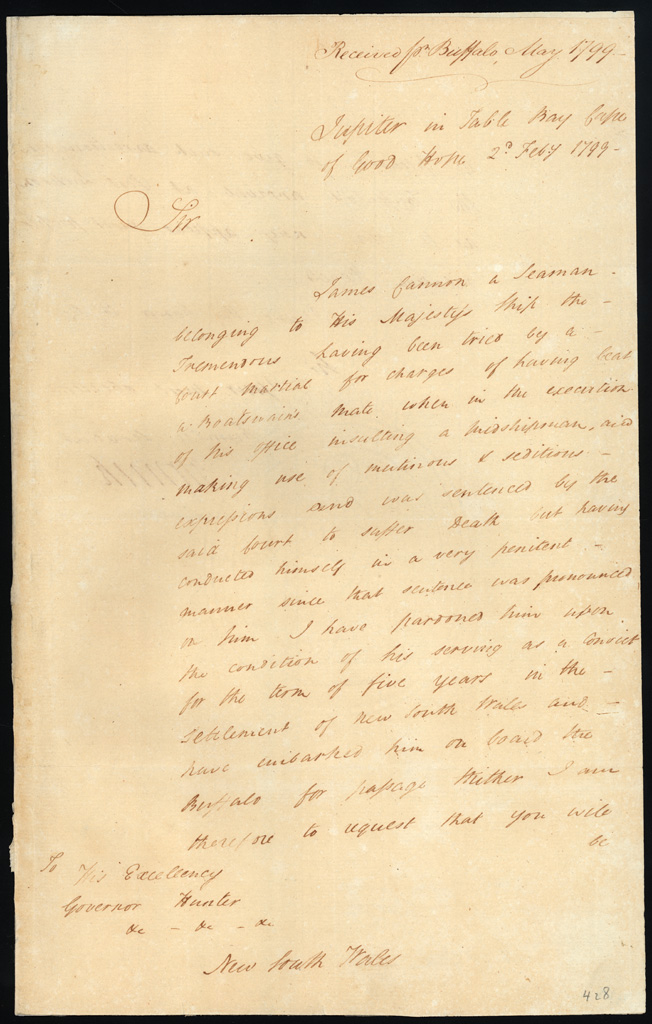 Received pr Buffalo, May 1799 -
Jupiter in Table Bay Cape
of Good Hope 2d Feby 1799 -
Sir
James Cannon a Seaman -
belonging to His Majestys Ship the -
Tremendous having been tried by a -
Court Martial for charges of having beat
a Boatswain's Mate when in the execution
of his office insulting a Midshipman, and
making use of mutinous & seditious -
expressions and was sentenced by the
said Court to suffer Death but having
conducted himself in a very penitent -
manner since that sentence was pronounced
on him I have pardoned him upon
the condition of his serving as a Convict
for the term of five years in the -
settlement of New South Wales and -
have embarked him on board the
Buffalo for passage thither I am
therefore to request that you will
be
To His Excellency
Governor Hunter
&c - &c - &c
New South Wales
428